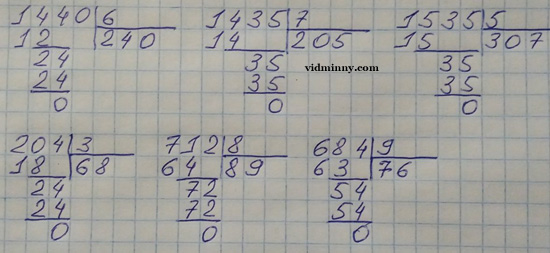 1440 6
12 240
24
24
0
1435 7
14 205
35
35
0
1535 5
15 307
35
35
0
vidminny.com
204 3
18 68
24
24
0
712 8
64 89
72
72
0
684 9
63 76
54
54
0